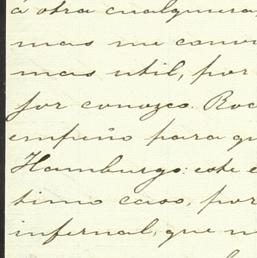 á otra cualquiera,
mas me conv
mas util, por
jor conozco. Roc
empeño para qu
Hamburgo: este e
timo caso, por
infernal, que n